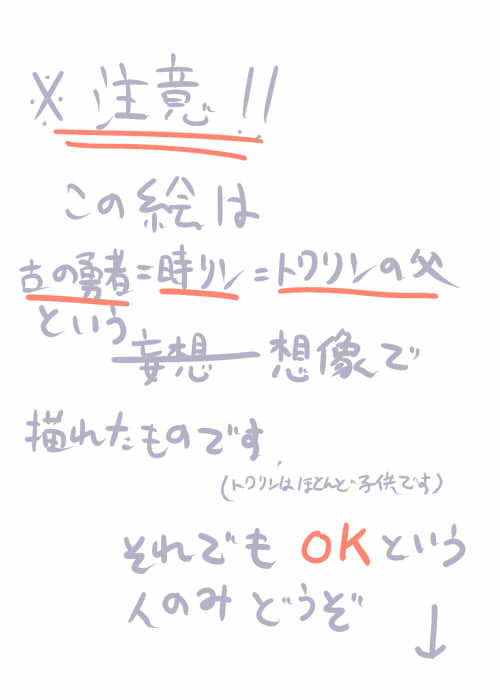 ※注意!!
この絵は
古の勇者=時リン=トワリンの父
という
妄想 想像で
描れたものです
(トワリンはほとんど子供です)
それでもOKという
人のみどうぞ ↓